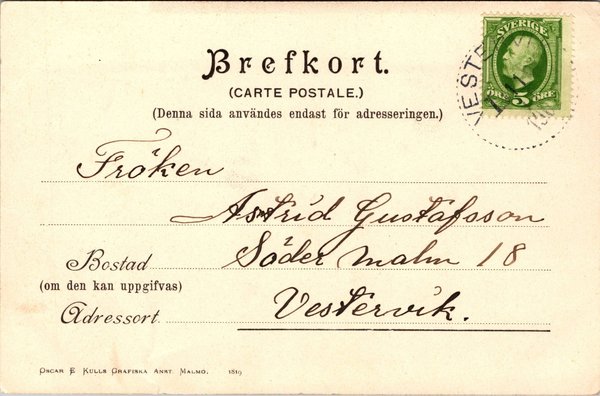 Brefkort.
(CARTE POSTALE.)
(Denna sida användes endast för adresseringen.)
SVERIGE
ÖRE 5 ÖRE
Fröken
Astrid Gustafsson
Bostad Söder malm 18
(om den kan uppgifvas)
Adressort. Vestervik.
OSCAR E KULLS GRAFISKA ANST. MALMÖ. 1819